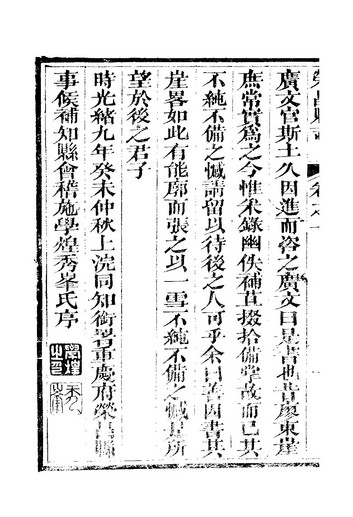 榮昌縣志
廣文官斯土久因進而咨之廣文曰是書也昔廖東崖
庶常實爲之今惟采錄幽佚補苴掇拾備掌故而已其
不純不備之憾請留以待後之人可乎余曰善因書其
崖畧如此有能廓而張之以一雪不純不備之憾是所
望於後之君子
時光緒九年癸未仲秋上浣同知銜署重慶府榮昌縣
事候補知縣會稽施學煌秀峯氏序